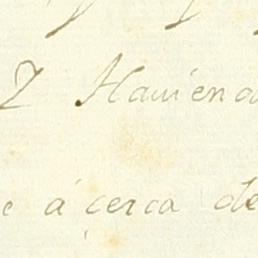 2 Haviend
e á cerca de